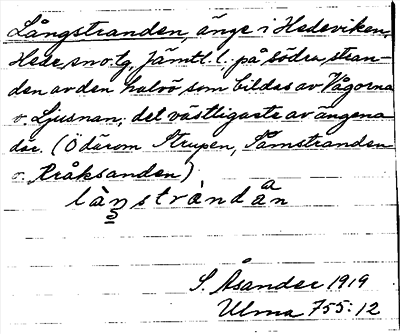 Långstranden, änge i Hedeviken,
Hede sn o. tg, Jämtl. l., på södra stran-
den av den halvö som bildas av Vågorna
o. Ljusnan; det västligaste av ängena
där. (Ö därom Strupen, Tåmstranden
o. Kråksanden)
S. Åsander 1919
Ulma 755:12